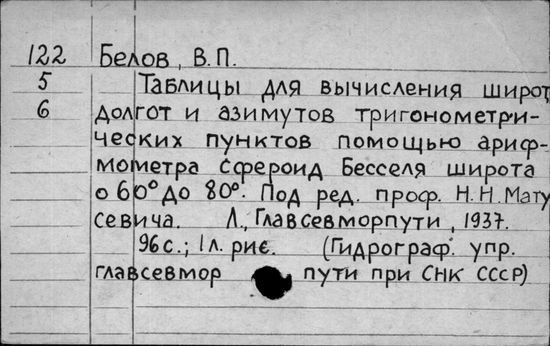 122 Белов, В.П.
5 Таблицы для вычисления широт
6 долгот и азимутов тригонометри-
ческих пунктов помощью ариф-
мометра Сфероид Бесселя широта
о 60° до 80°. Под ред. проф. Н.Н. Мату
севича. Л., Главсевморпути, 1937.
96с.; 1л. рис. (Гидрограф. упр.
главсевмор пути при СНК СССР)